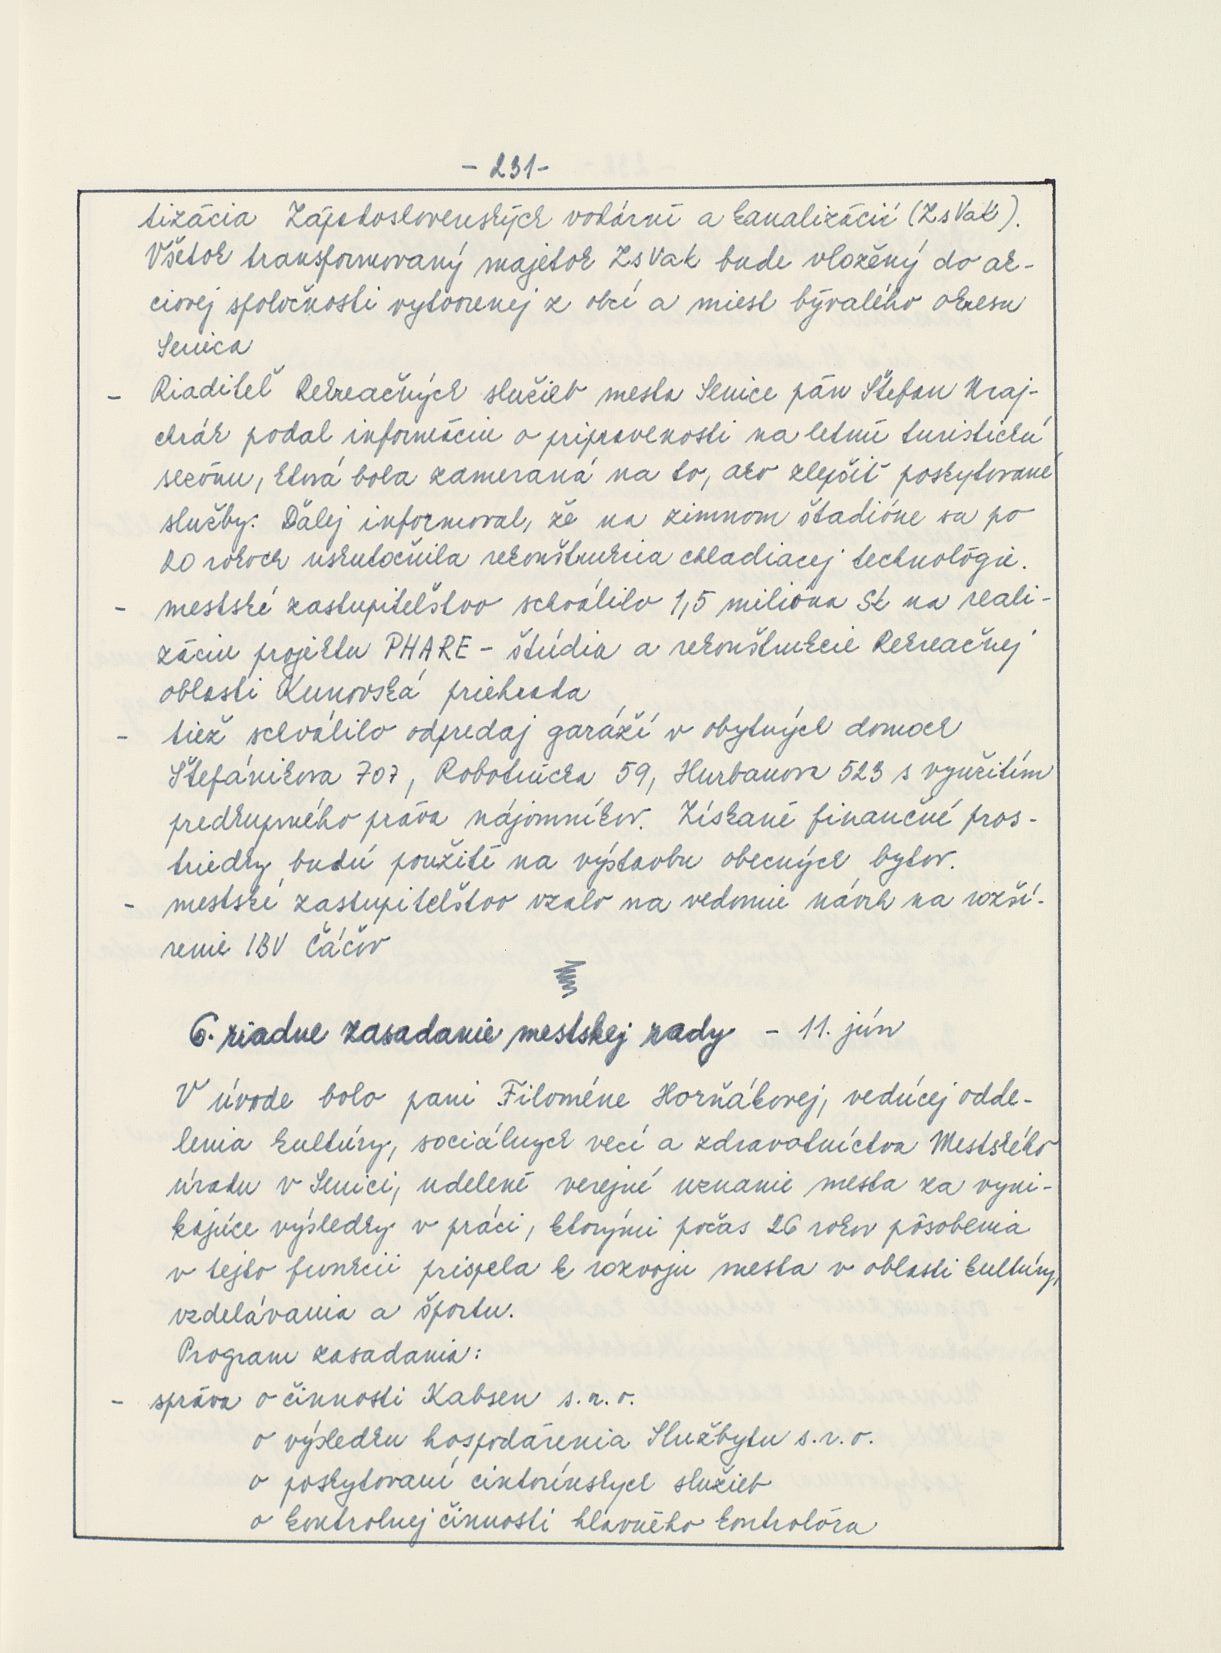 - 231 -
tizácia Západoslovenských vodární a kanalizácií (ZsVak).
Všetok transformovaný majetok ZsVak bude vložený do ak-
ciovej spoločnosti vytvorenej z obcí a miest bývalého okresu
Senica
- Riaditeľ Rekreačných služieb mesta Senice pán Štefan Kraj-
chrák podal informáciu o pripravenosti na letnú turistickú
sezónu, ktorá bola zameraná na to, ako zlepšiť poskytované
služby. Ďalej informoval, že na zimnom štadióne sa po
20 rokoch uskutočnila rekonštrukcia chladiacej technológie.
- mestské zastupiteľstvo schválilo 1,5 milióna Sk na reali-
záciu projektu PHARE - štúdia a rekonštrukcie Rekreačnej
oblasti Kunovská priehrada
- tiež schválilo odpredaj garáží v obytných domoch
Štefánikova 707, Robotnícka 59, Hurbanova 523 s využitím
predkupného práva nájomníkov. Získané finančné pros-
triedky budú použité na výstavbu obecných bytov.
- mestské zastupiteľstvo vzalo na vedomie návrh na rozší-
renie IBV Čáčov
6. riadne zasadanie mestskej rady - 11. jún
V úvode bolo pani Filoméne Horňákovej, vedúcej odde-
lenia kultúry, sociálnych vecí a zdravotníctva Mestského
úradu v Senici, udelené verejné uznanie mesta za vyni-
kajúce výsledky v práci, ktorými počas 26 rokov pôsobenia
v tejto funkcii prispela k rozvoju mesta v oblasti kultúry,
vzdelávania a športu.
Program zasadania:
- správa o činnosti Kabsen s.r.o.
o výsledku hospodárenia Službytu s.r.o.
o poskytovaní cintorínskych služieb
o kontrolnej činnosti hlavného kontrolóra